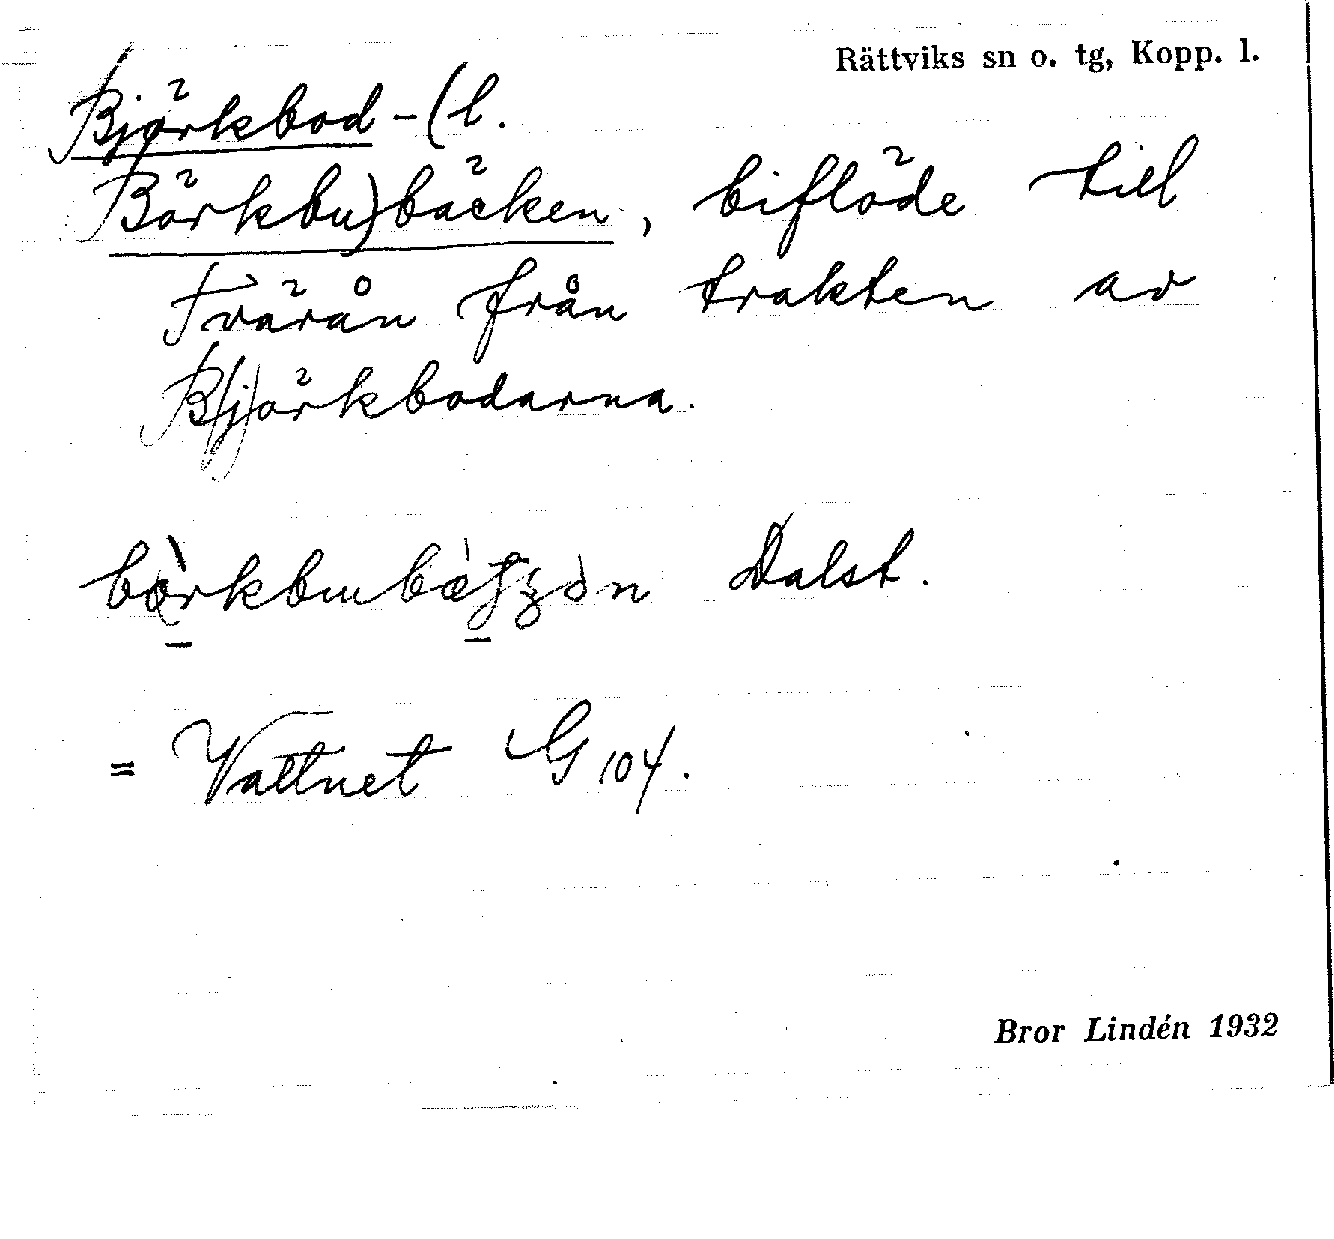 Rättviks sn o. tg, Kopp. l.
Björkbod-(l.
Börkbu)bäcken, biflöde till
Tvärån från trakten av
B(j)örkbodarna.
Dalst.
= Vattnet G 104.
Bror Lindén 1932